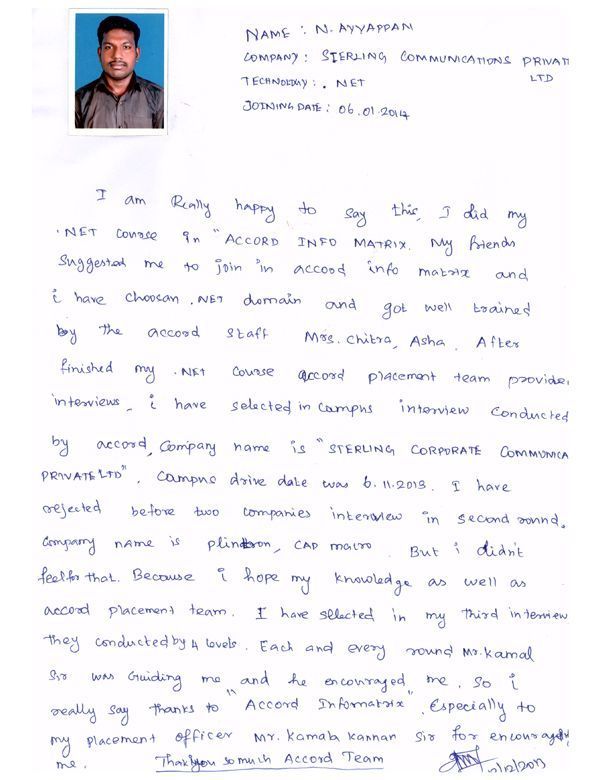 NAME : N. AYYAPPAN
COMPANY : STERLING COMMUNICATIONS PRIVAT
LTD
TECHNOLOGY : . NET
JOINING DATE : 06.01.2014
I am Really happy to say this, I did my
.NET Course in "ACCORD INFO MATRIX. My friends
Suggested me to join in accord info matrix and
i have choosan .NET domain and got well trained
by the accord staff Mrs. Chitra, Asha. After
finished my .NET Course accord placement team provide
interviews, i have selected in Campus interview conducted
by accord, Company name is "STERLING CORPORATE COMMUNICA
PRIVATE LTD". Campus drive date was 6.11.2013. I have
rejected before two companies interview in second round.
Company name is CAD macro. But i didn't
feel for that. Because i hope my knowledge as well as
accord placement team. I have sellected in my third interview
they conducted by 4 levels. Each and every round Mr. Kamal
Sir was Guiding me and he encouraged me. So i
really say thanks to "Accord Infomatrix". Especially to
my placement officer Mr. Kamala Kannan Sir for encouraging
me. Thankyou so much Accord Team